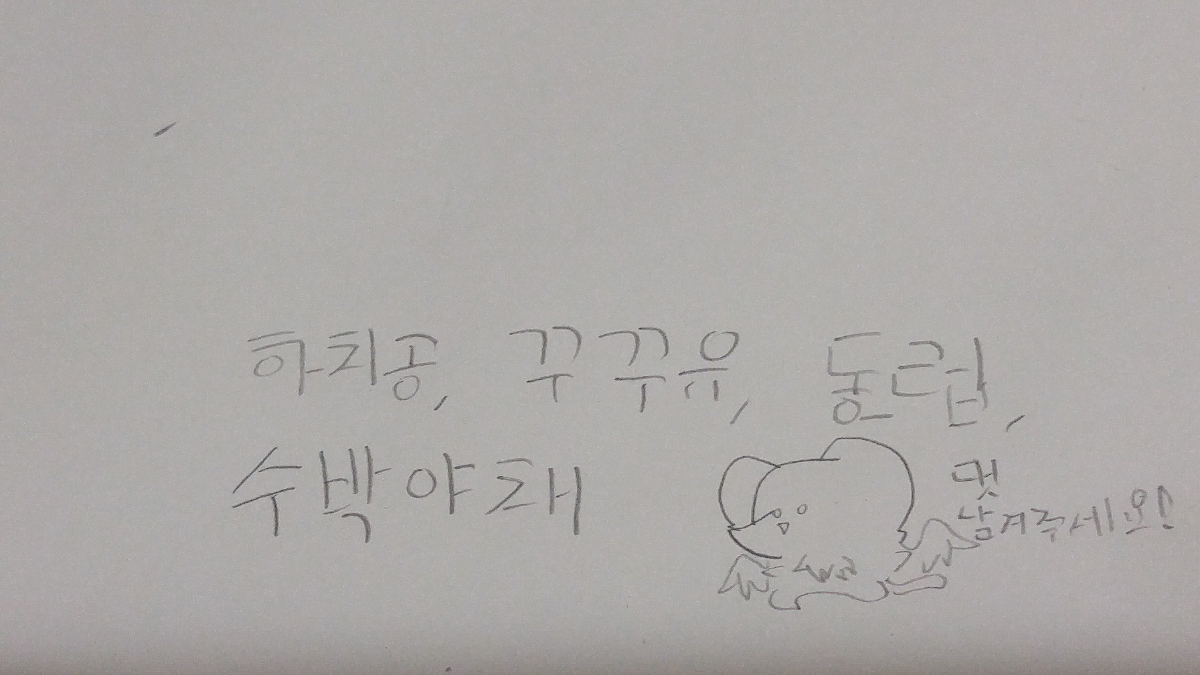 하치공, 꾸꾸유, 동그럽,
수박야채
댓
남겨주세요!